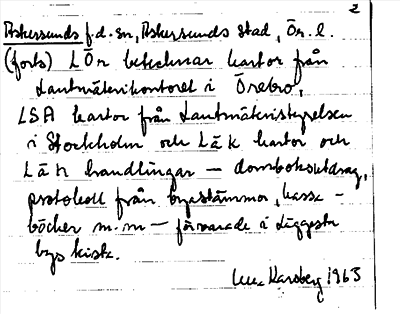 2
Askersunds f.d. sn, Askersunds stad, Ör. l.
(forts) LÖr betecknar kartor från
Lantmäterikontoret i Örebro,
LSA kartor från Lantmäteristyrelsen
i Stockholm och LäK kartor och
LäH handlingar — domboksutdrag,
protokoll från byastämmor, kassa-
böcker m.m — förvarade i Läggesta
bys kista.
Karsberg 1963